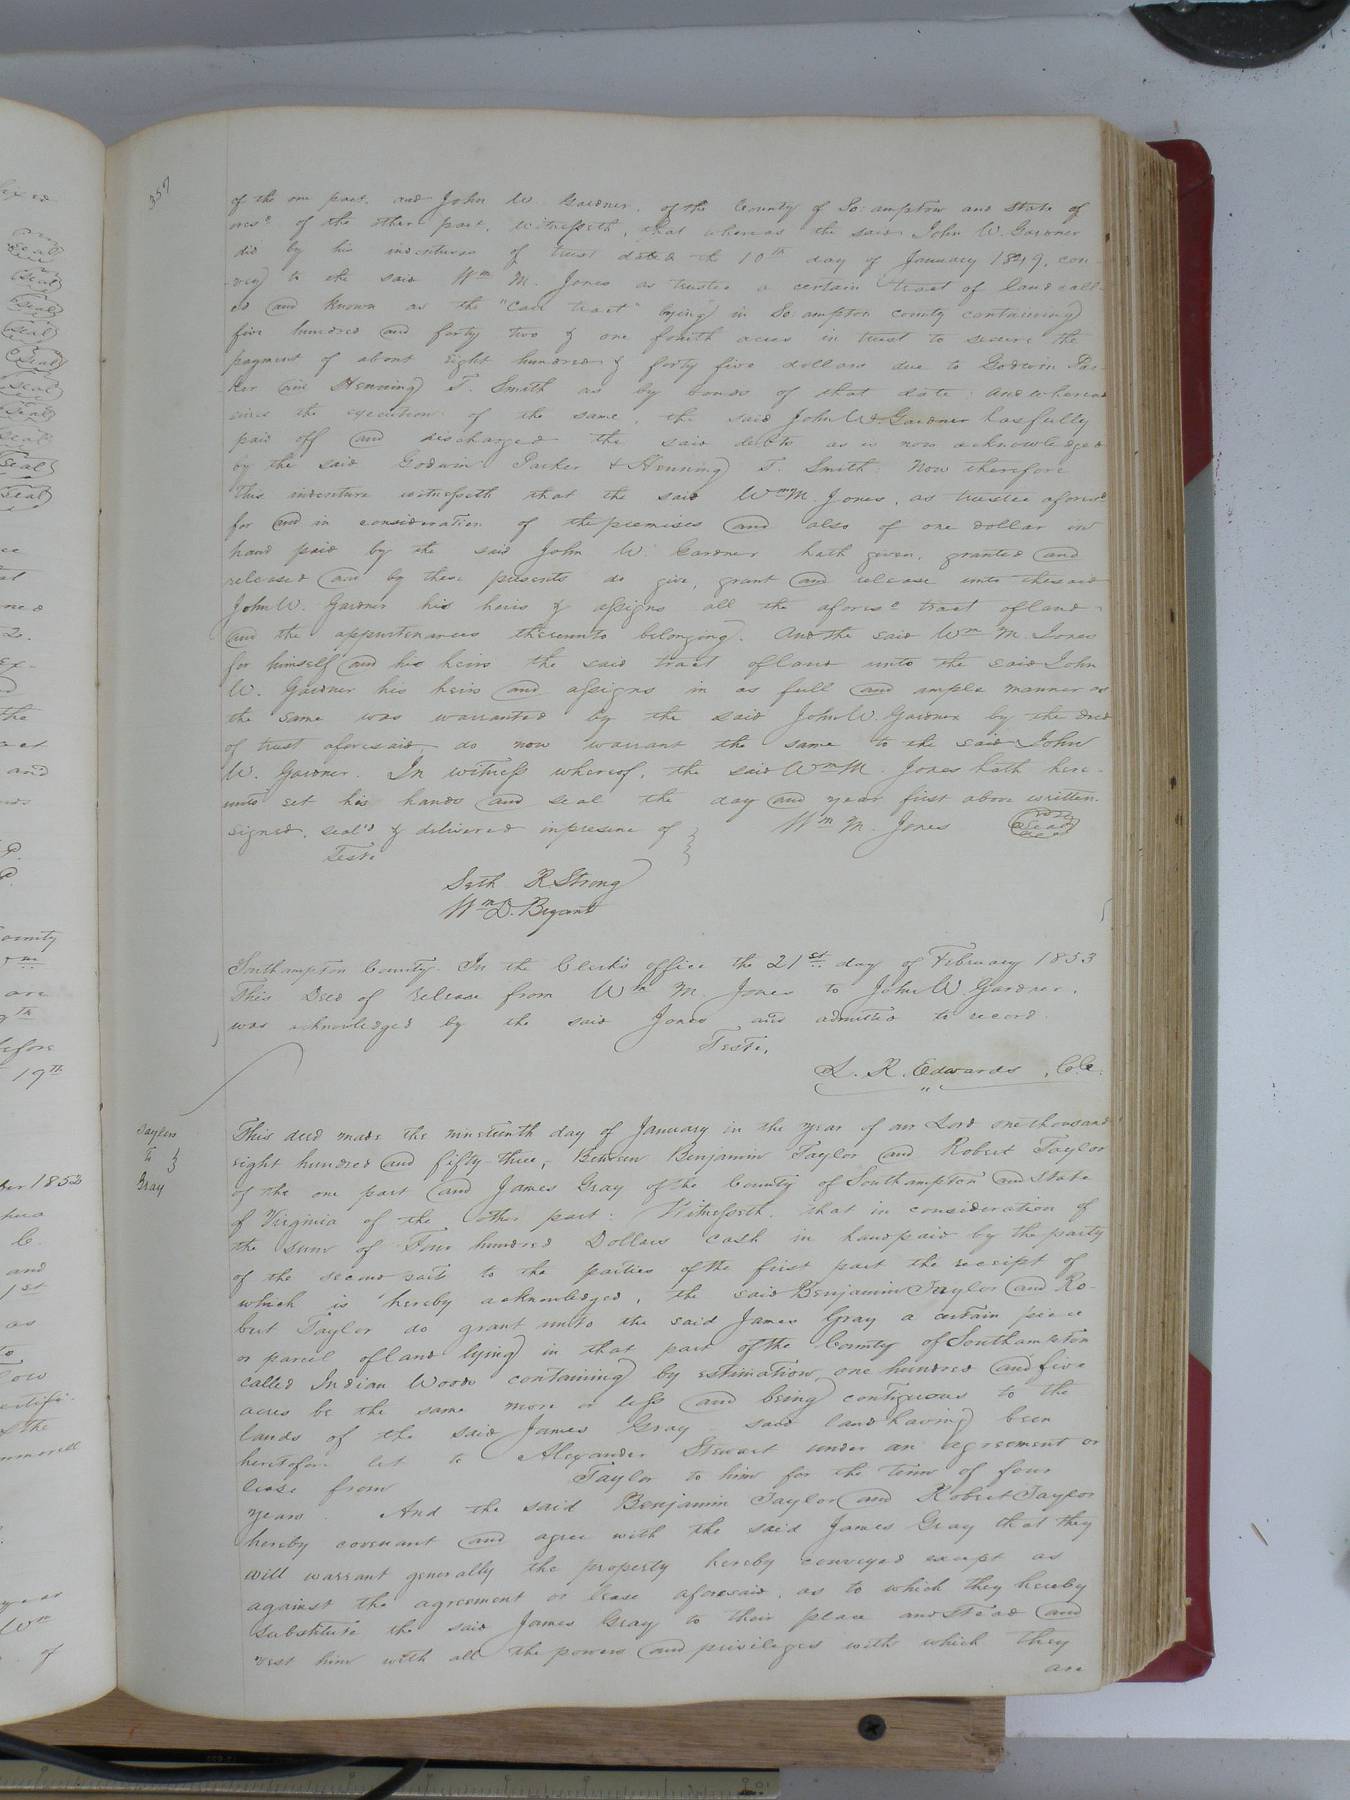 357
of the one part, and John W. Gardner, of the County of So:ampton and State of
afores:d of the other part, Witnesseth, that whereas the said John W. Gardner
did by his indenture of trust dated the 10th day of January 1849, con-
-vey to the said Wm M. Jones as trustee a certain tract of land call-
ed and known as the "Carr tract" lying in So:ampton county containing
five hundred and forty two & one fourth acres in trust to secure the
payment of about eight hundred & forty five dollars due to Godwin Par-
ker and Henning T. Smith as by bonds of that date: and whereas
since the execution of the same, the said John W. Gardner has fully
paid off and discharged the said debts as is now acknowledged
by the said Godwin Parker & Henning T. Smith: Now therefore
this indenture witnesseth that the said Wm M. Jones, as trustee afores:d
for and in consideration of the premises and also of one dollar in
hand paid by the said John W. Gardner hath given, granted and
released and by these presents do give, grant and release unto the said
John W. Gardner his heirs & assigns all the afores:d tract of land
and the appurtenances thereunto belonging. And the said Wm M. Jones
for himself and his heirs the said tract of land unto the said John
W. Gardner his heirs and assigns in as full and ample manner as
the same was warranted by the said John W. Gardner by the deed
of trust aforesaid, do now warrant the same to the said John
W. Gardner. In witness whereof, the said Wm M. Jones hath here-
unto set his hands and seal the day and year first above written.
signed, seal'd & delivered in presence of } Wm M. Jones Seal
Teste
Seth R. Strong
Wm D. Bryant
Southampton County. In the Clerk's office the 21st day of February 1853
This Deed of release from Wm M. Jones to John W Gardner,
was acknowledged by the said Jones and admitted to record.
Teste,
L. R. Edwards, C.C.
Taylors
to }
Gray
This deed made the nineteenth day of January in the year of our Lord one thousand
eight hundred and fifty-three, Between Benjamin Taylor and Robert Taylor
of the one part and James Gray of the County of Southampton and State
of Virginia of the other part: Witnesseth, that in consideration of
the sum of Four hundred Dollars cash in hand paid by the party
of the second part to the parties of the first part the receipt of
which is hereby acknowledged, the said Benjamin Taylor and Ro-
bert Taylor do grant unto the said James Gray a certain piece
or parcel of land lying in that part of the County of Southampton
called Indian Woods containing by estimation one hundred and five
acres be the same more or less and being contiguous to the
lands of the said James Gray said land having been
heretofore let to Alexander Stewart under an agreement or
lease from Taylor to him for the term of four
years. And the said Benjamin Taylor and Robert Taylor
hereby covenant and agree with the said James Gray that they
will warrant generally the property hereby conveyed except as
against the agreement or lease aforesaid, as to which they hereby
substitute the said James Gray to their place and stead and
vest him with all the powers and privileges with which they
are